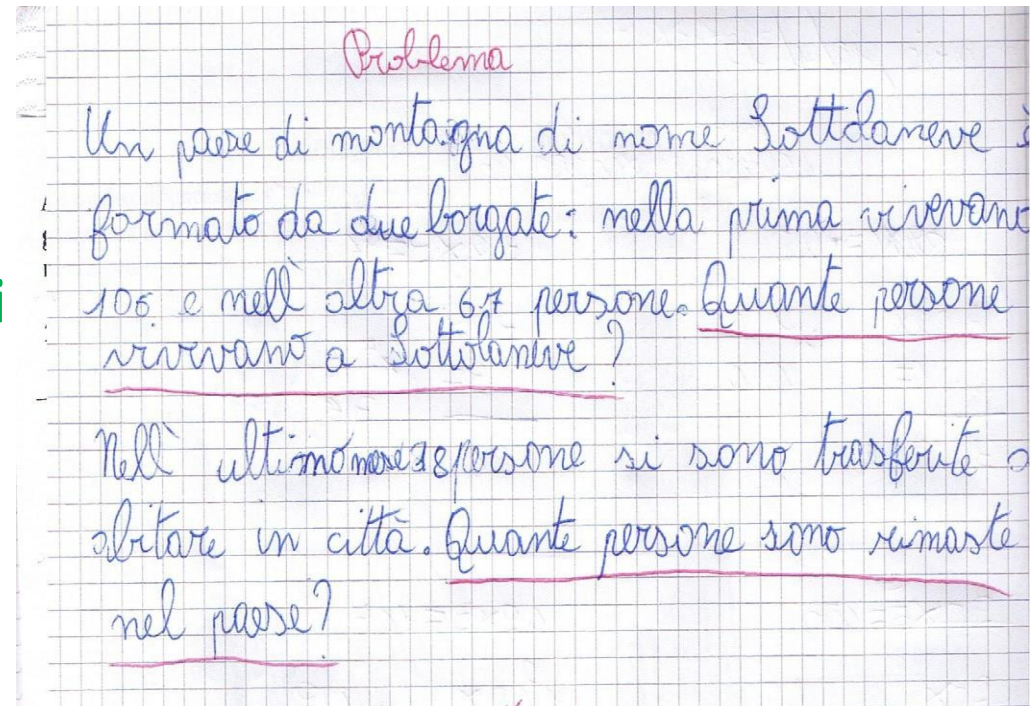 Problema
Un paese di montagna di nome Sottolaneve è
formato da due borgate: nella prima vivevano
i
106 e nell'altra 67 persone. Quante persone
vivevano a Sottolaneve?
Nell'ultimo mese 28 persone si sono trasferite a
abitare in città. Quante persone sono rimaste
nel paese?